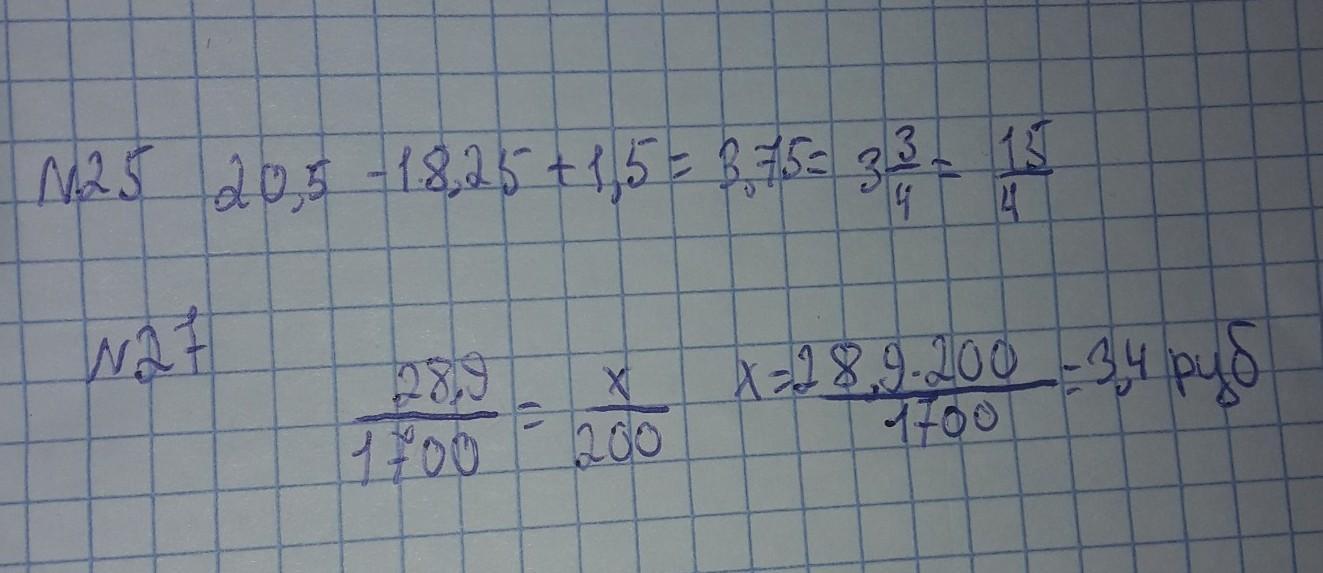 N25 20,5 - 18,25 + 1,5 = 3,75 = 3 3/4 = 15/4
N27
28,9/1700 = x/200 x = 28,9·200/1700 = 3,4 руб